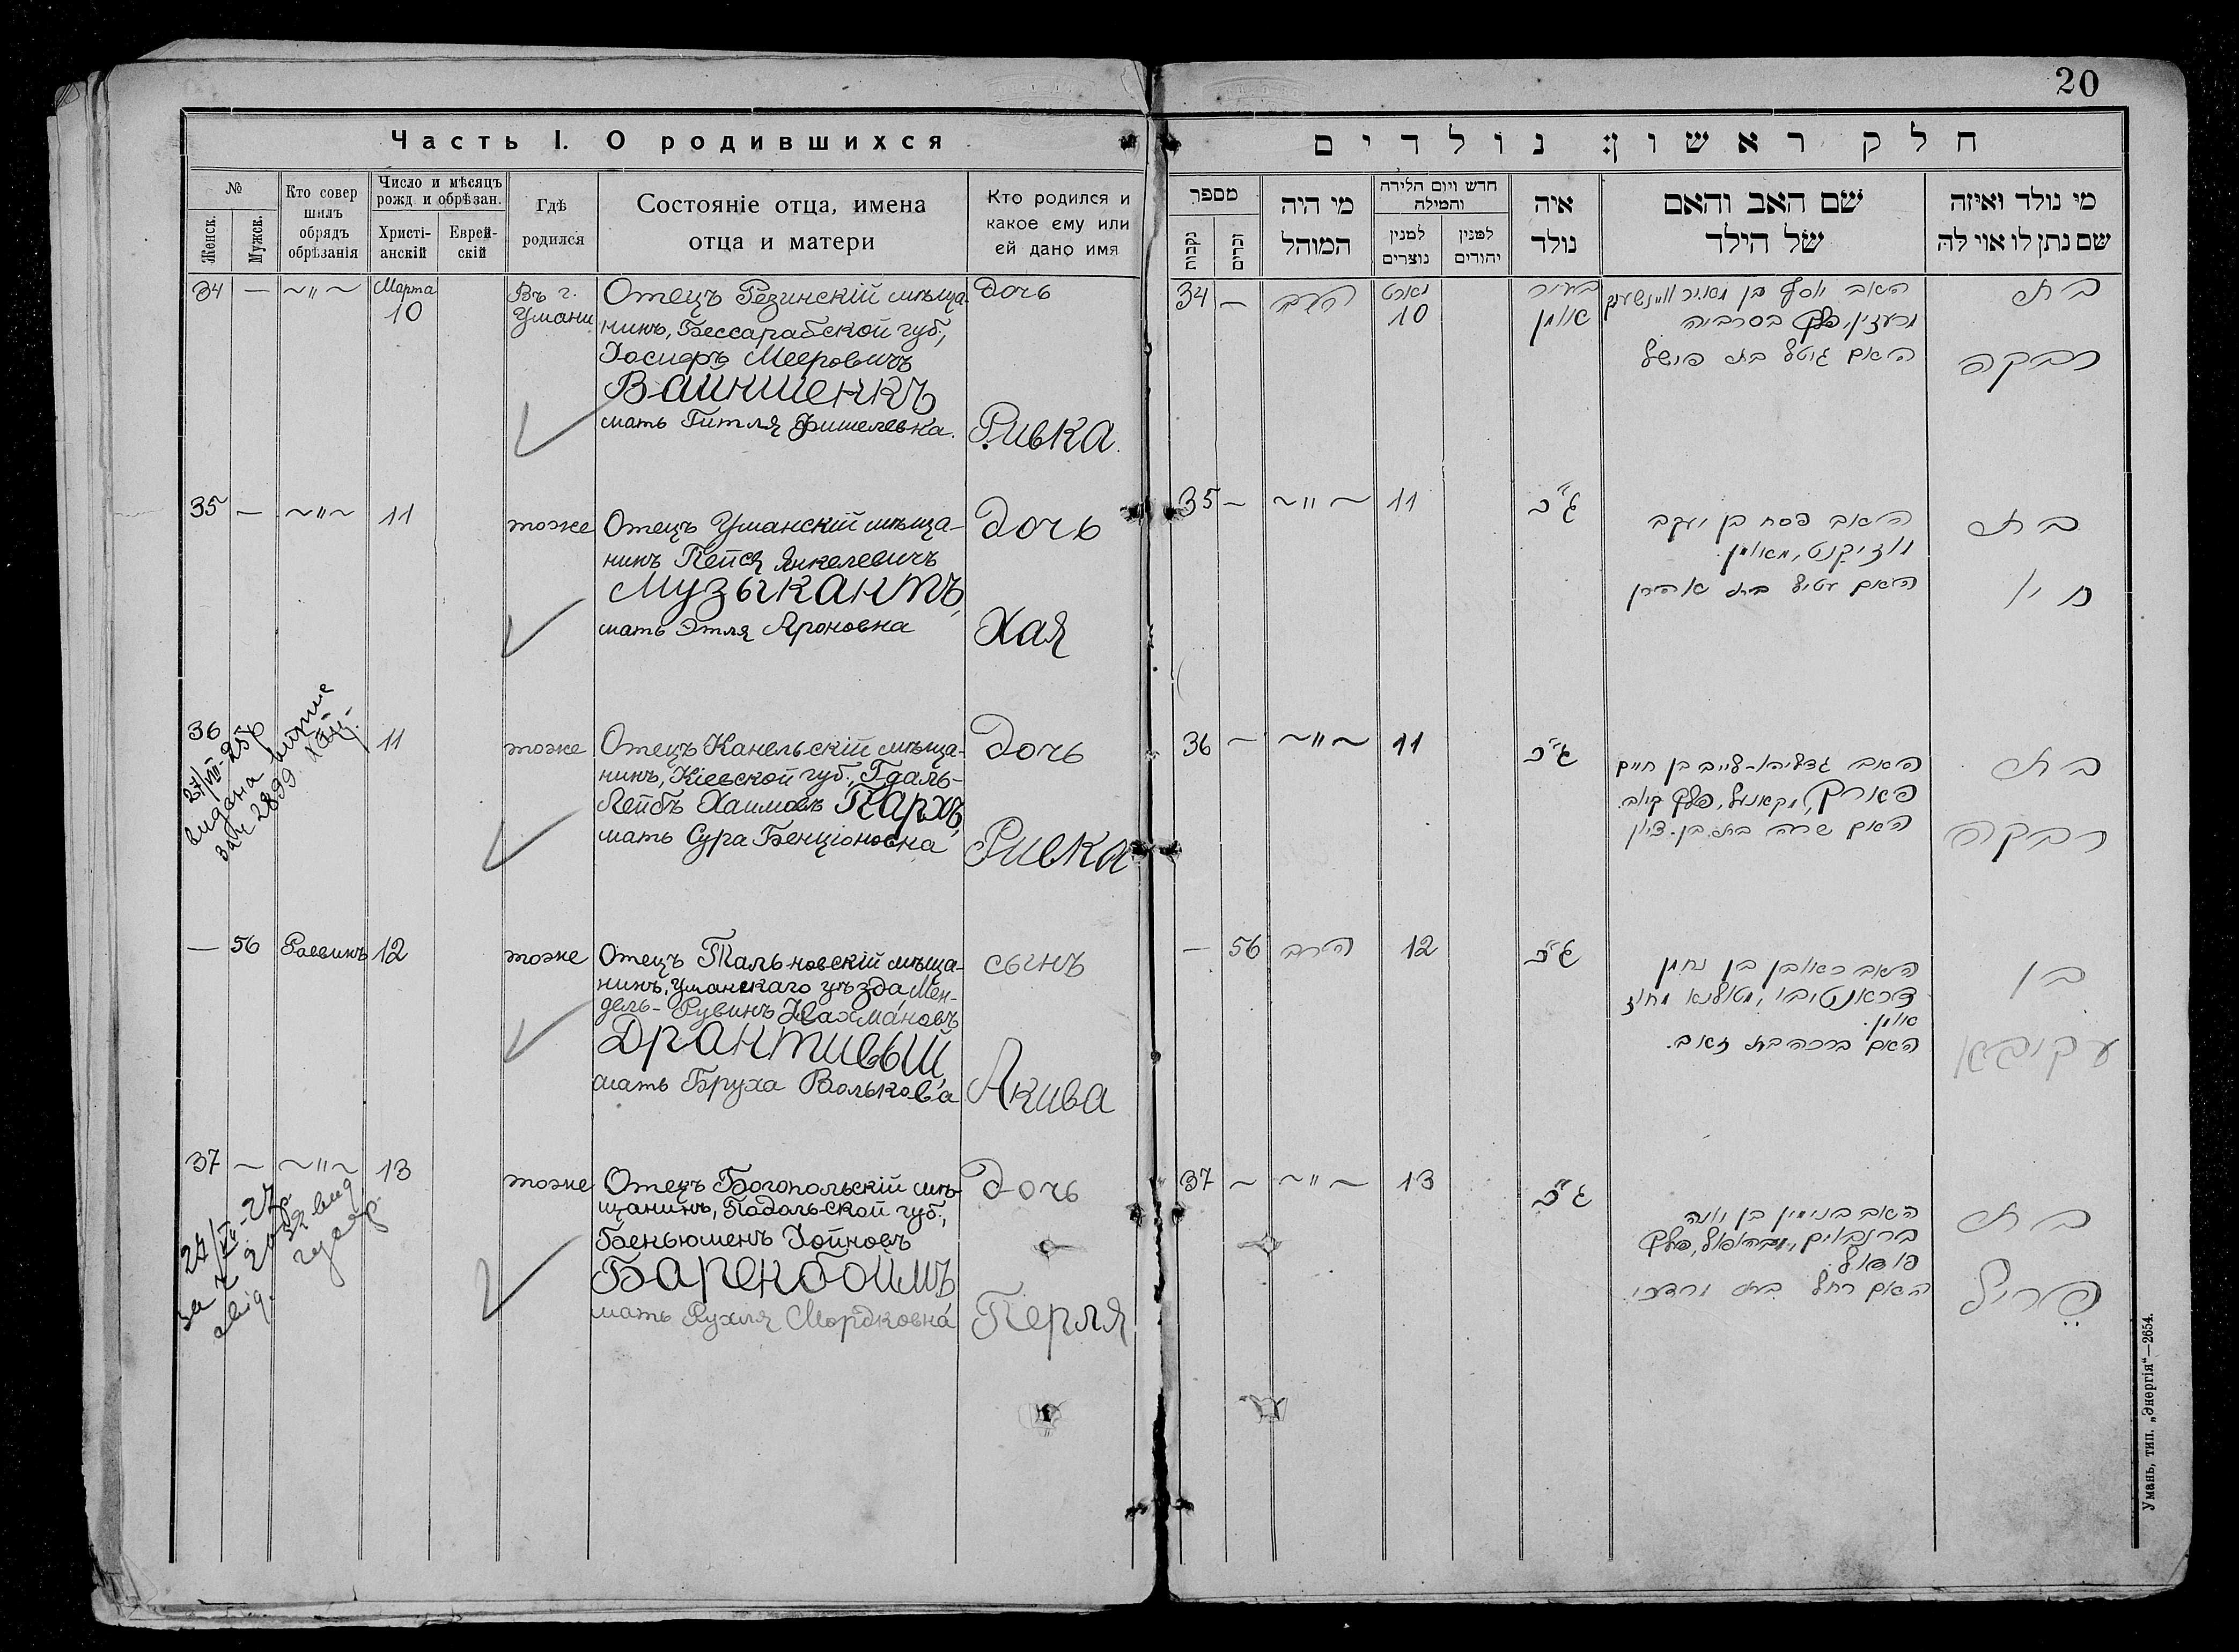 20
Часть I. О родившихся
№
Женск.
Мужск.
Кто совер
шилъ
обрядъ
обрѣзанія
Число и мѣсяцъ
рожд. и обрѣзан.
Христі-
анскій
Еврей-
скій
Гдѣ
родился
Состояніе отца, имена
отца и матери
Кто родился и
какое ему или
ей дано имя
34 — ~„~ Марта
10
Въ г.
Умани
Отецъ Резинскій мѣща-
нинъ, Бессарабской губ.,
Іосифъ Мееровичъ
Вайншенкъ
мать Гитля Фишелевна.
Дочь
Ривка.
35 — ~„~ 11
тоже
Отецъ Уманскій мѣща-
нинъ Пейся Янкелевичъ
Музыкантъ,
мать Этля Ароновна
Дочь
Хая
36 11
27/VIII-25р
видана
за № 2899
тоже
Отецъ Канельскій мѣща-
нинъ, Кіевской губ., Гдаль-
Лейбъ Хаимовъ Пархъ,
мать Сура Бенціоновна
Дочь
Ривка
— 56 Раввинъ 12
тоже
Отецъ Тальновскій мѣща-
нинъ, Уманскаго уѣзда Мен-
дель-Рувинъ Нахмановъ
Драитивый
мать Бруха Волькова
сынъ
Акива
37 — ~„~ 13
тоже
Отецъ Богопольскій мѣ-
щанинъ, Подольской губ.,
Беньюменъ Іойновъ
Баренбоймъ
мать Рухля Мордковна
Дочь
Перля
חלק ראשון: נולדים
מספר
נקבות
זכרים
מי היה
המוהל
חדש ויום הלידה
והמילה
למנין
נוצרים
למנין
יהודים
איה
נולד
שם האב והאם
של הילד
מי נולד ואיזה
שם נתן לו אוי לה
34 — הרב מארט
10
בעיר
אומן
האב יוסף בן מאיר וויינשענק
מרעזין, פלך בסרביה
האם גיטל בת פישל
בת
רבקה
35 — ~„~ 11
ג״כ
האב פסח בן יעקב
מוזיקנט, מאומן.
האם עטיל בת אהרן
בת
חיה
36 — ~„~ 11
ג״כ
האב גדליה-לייב בן חיים
פארך, מקאנעל, פלך קיוב.
האם שרה בת בן-ציון
בת
רבקה
— 56 הרב 12
ג״כ
האב ראובן בן נחמן
דראנטיבי, מטאלנא מחוז
אומן.
האם ברכה בת זאב.
בן
עקיבא
37 — ~„~ 13
ג״כ
האב בנימין בן יונה
ברנבוים, מבהאפאל, פלך
פודול.
האם רחל בת מרדכי.
בת
פריל
Умань, тип. „Энергія“—2654.